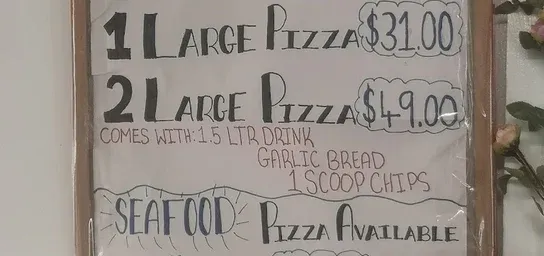 1 LARGE PIZZA $31.00
2 LARGE PIZZA $49.00
COMES WITH: 1.5 LTR DRINK
GARLIC BREAD
1 SCOOP CHIPS
SEAFOOD PIZZA AVAILABLE